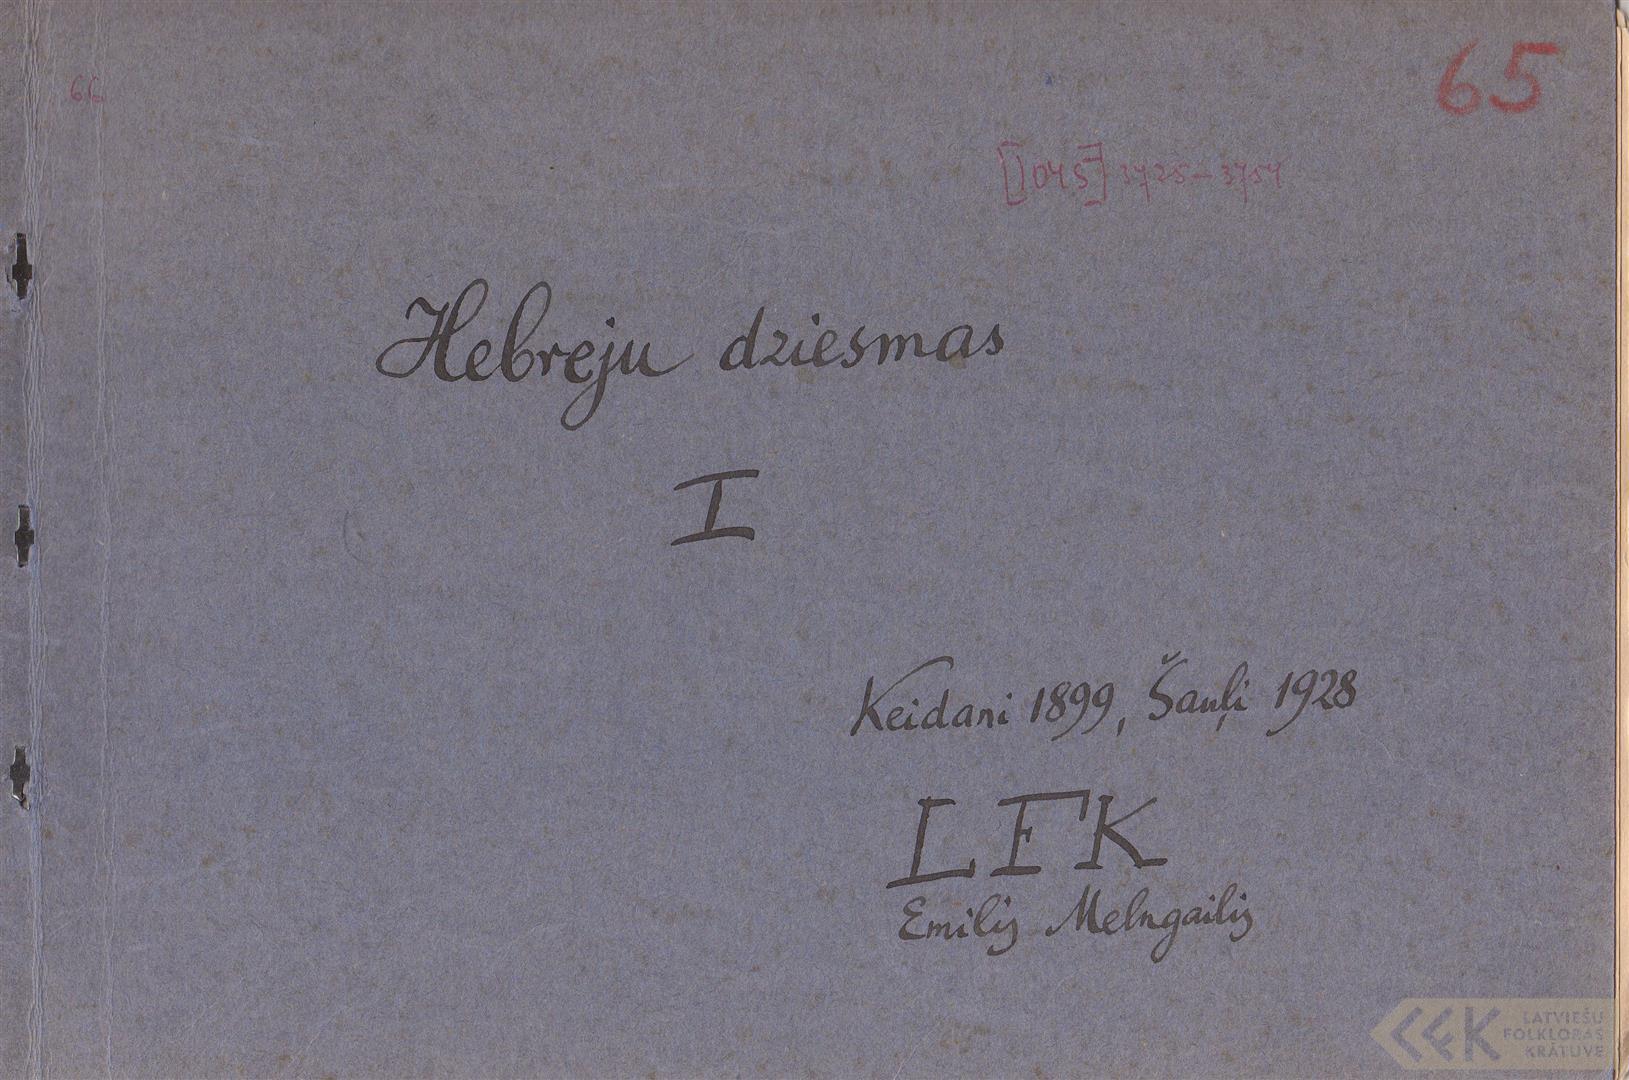 65
66
[1045] 3725–3754
Hebreju dziesmas
I
Keidani 1899, Šauļi 1928
LFK
Emilis Melngailis
LFK LATVIEŠU
FOLKLORAS
KRĀTUVE